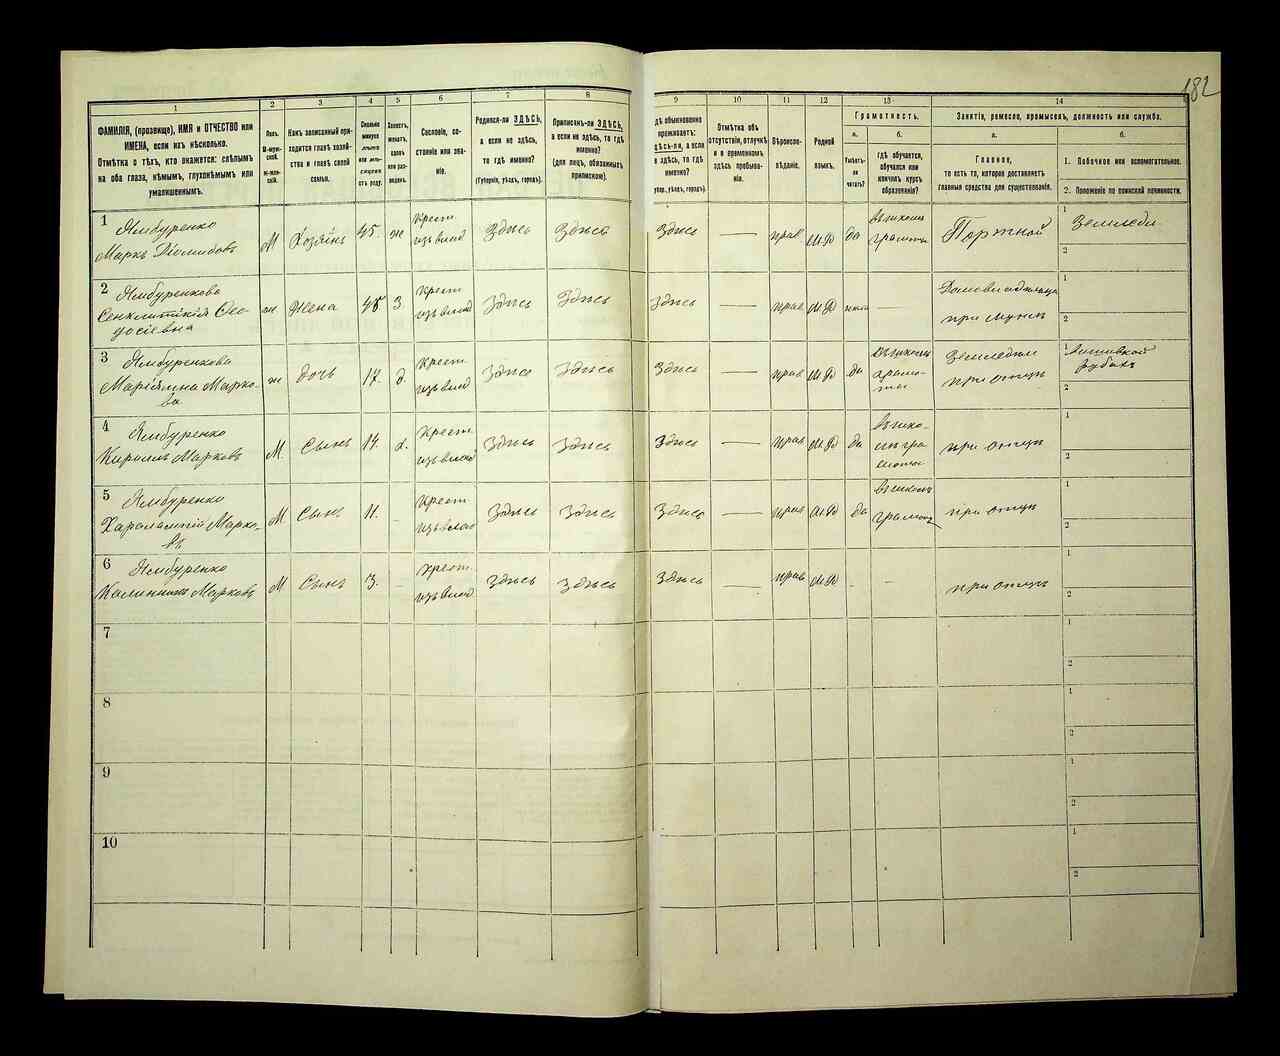 182
1
2
3
4
5
6
7
8
9
10
11
12
13
14
ФАМИЛІЯ, (прозвище), ИМЯ и ОТЧЕСТВО или
ИМЕНА, если ихъ нѣсколько.
Отмѣтка о тѣхъ, кто окажется: слѣпымъ
на оба глаза, нѣмымъ, глухонѣмымъ или
умалишеннымъ.
Полъ.
М-муж-
ской.
Ж-жен-
скій.
Какъ записанный при-
ходится главѣ хозяй-
ства и главѣ своей
семьи.
Сколько
минуло
лѣтъ
или мѣ-
сяцевъ
отъ роду.
Холостъ,
женатъ,
вдовъ
или раз-
веденъ.
Сословіе, со-
стояніе или зва-
ніе.
Родился-ли ЗДѢСЬ,
а если не здѣсь,
то гдѣ именно?
(Губернія, уѣздъ, городъ).
Приписанъ-ли ЗДѢСЬ,
а если не здѣсь, то гдѣ
именно?
(для лицъ, обязанныхъ
припискою).
дѣ обыкновенно
проживаетъ:
здѣсь-ли, а если
е здѣсь, то гдѣ
именно?
убер., уѣздъ, городъ).
Отмѣтка объ
отсутствіи, отлучкѣ
и о временномъ
здѣсь пребыва-
ніи.
Вѣроиспо-
вѣданіе.
Родной
языкъ.
Грамотность.
а.
б.
Умѣетъ-
ли
читать?
гдѣ обучается,
обучался или
кончилъ курсъ
образованія?
Занятіе, ремесло, промыселъ, должность или служба.
а.
б.
Главное,
то есть то, которое доставляетъ
главныя средства для существованія.
1. Побочное или вспомогательное.
2. Положеніе по воинской повинности.
1
Ямбуренко
Маркъ Діомидовъ
М Хозяинъ 45. ж Крест.
изъ влад
Здѣсь Здѣсь Здѣсь — прав М.Р да
въ школѣ
грамоты
Портной
1 Земледѣ.
2
2
Ямбуренкова
Сенклитикія Ѳео-
досіевна
ж Жена 45 З Крест
изъ влад
Здѣсь Здѣсь Здѣсь — прав М.Р —
при мужѣ
1
2
3
Ямбуренкова
Маріамна Марко-
ва
ж дочь 17. д. Крест
изъ влад
Здѣсь Здѣсь Здѣсь — прав М.Р да
въ школѣ
грамо-
ты
Земледѣл
при отцѣ
1
рубахъ
2
4
Ямбуренко
Кириллъ Марковъ
М. Сынъ 14. Крест.
изъ влад
Здѣсь Здѣсь Здѣсь — прав М.Р да
въ шко-
лѣ гра-
моты
при отцѣ
1
2
5
Ямбуренко
Харалампій Марко-
въ
М Сынъ 11. — Крест
изъ влад
Здѣсь Здѣсь Здѣсь — прав М.Р да
въ школѣ
грамоты
при отцѣ
1
2
6
Ямбуренко
Калинникъ Марковъ
М Сынъ 3. — Крест.
изъ влад
Здѣсь Здѣсь Здѣсь — прав М.Р - —
при отцѣ
1
2
7
1
2
8
1
2
9
1
2
10
1
2